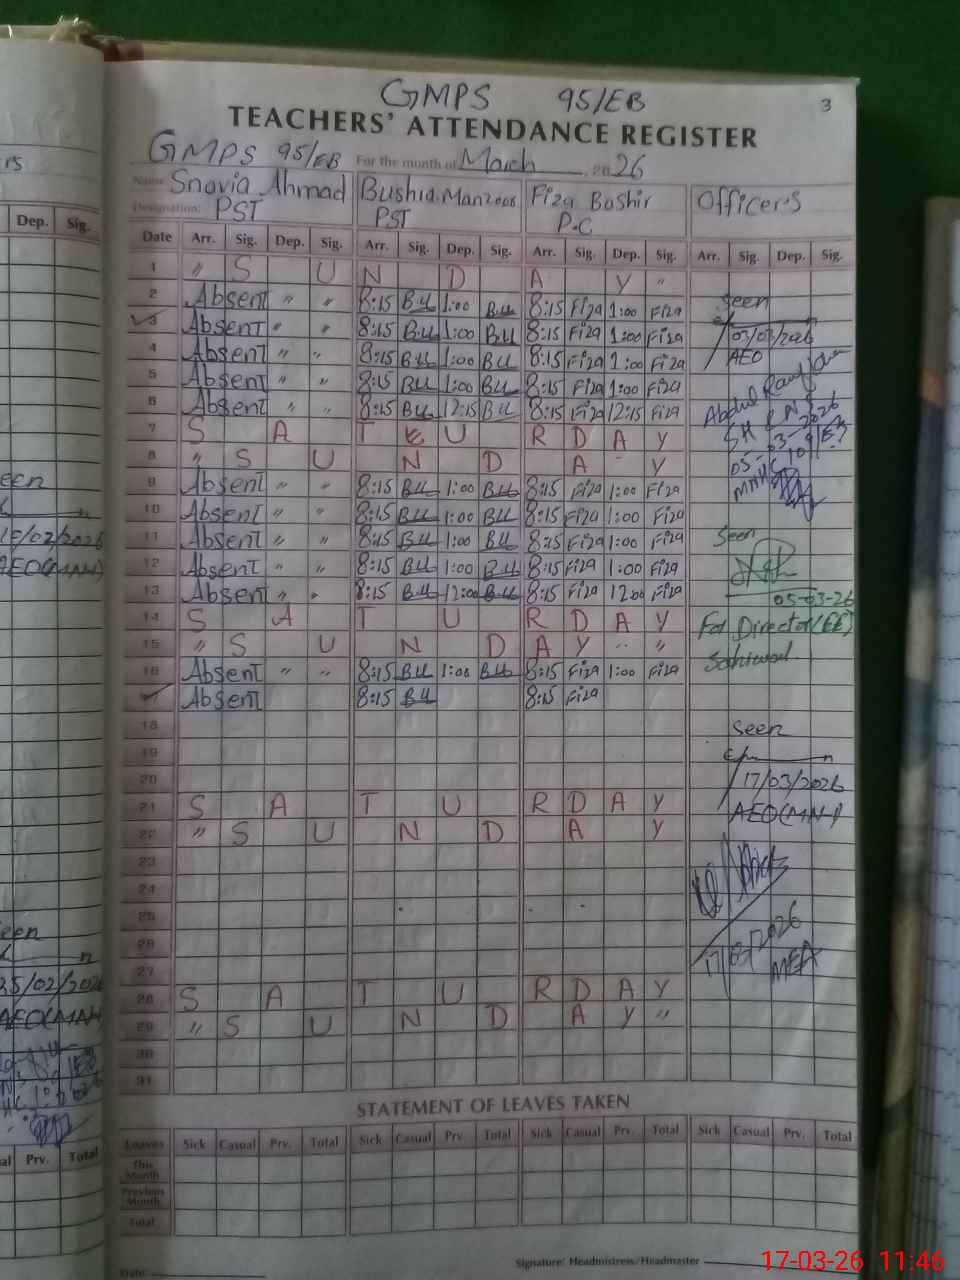 GMPS 95/EB
3
TEACHERS' ATTENDANCE REGISTER
GMPS 95/EB For the month of March, 2026
Name: Snovia Ahmad Bushra Manzoor Fiza Bashir Officer's
Designation: PST PST P.C
Date Arr. Sig. Dep. Sig. Arr. Sig. Dep. Sig. Arr. Sig. Dep. Sig. Arr. Sig. Dep. Sig.
1 " S U N D A Y "
2 Absent " " 8:15 BM 1:00 BM 8:15 Fiza 1:00 Fiza
3 Absent " " 8:15 BM 1:00 BM 8:15 Fiza 1:00 Fiza
4 Absent " " 8:15 BM 1:00 BM 8:15 Fiza 1:00 Fiza
5 Absent " " 8:15 BM 1:00 BM 8:15 Fiza 1:00 Fiza
6 Absent " " 8:15 BM 12:15 BM 8:15 Fiza 12:15 Fiza
7 S A T U R D A Y
8 " S U N D A Y
9 Absent " " 8:15 BM 1:00 BM 8:15 Fiza 1:00 Fiza
10 Absent " " 8:15 BM 1:00 BM 8:15 Fiza 1:00 Fiza
11 Absent " " 8:15 BM 1:00 BM 8:15 Fiza 1:00 Fiza
12 Absent " " 8:15 BM 1:00 BM 8:15 Fiza 1:00 Fiza
13 Absent " " 8:15 BM 12:00 BM 8:15 Fiza 12:00 Fiza
14 S A T U R D A Y
15 " S U N D A Y " "
16 Absent " " 8:15 BM 1:00 BM 8:15 Fiza 1:00 Fiza
Absent 8:15 BM 8:15 Fiza
18
19
20
21 S A T U R D A Y
22 " S U N D A Y
23
24
25
26
27
28 S A T U R D A Y
29 " S U N D A Y "
30
31
Seen
03/03/2026
AEO
Abdul
05-03-2026
Seen
05-03-26
For Director (EE)
Sahiwal
Seen
17/03/2026
AEO(MN-I)
17/03/2026
MEA
STATEMENT OF LEAVES TAKEN
Leaves Sick Casual Prv. Total Sick Casual Prv. Total Sick Casual Prv. Total Sick Casual Prv. Total
This Month
Previous Month
Total
Date
Signature: Headmistress/Headmaster
17-03-26 11:46
Dep. Sig.
een
16/02/2026
een
25/02/2026
Prv. Total